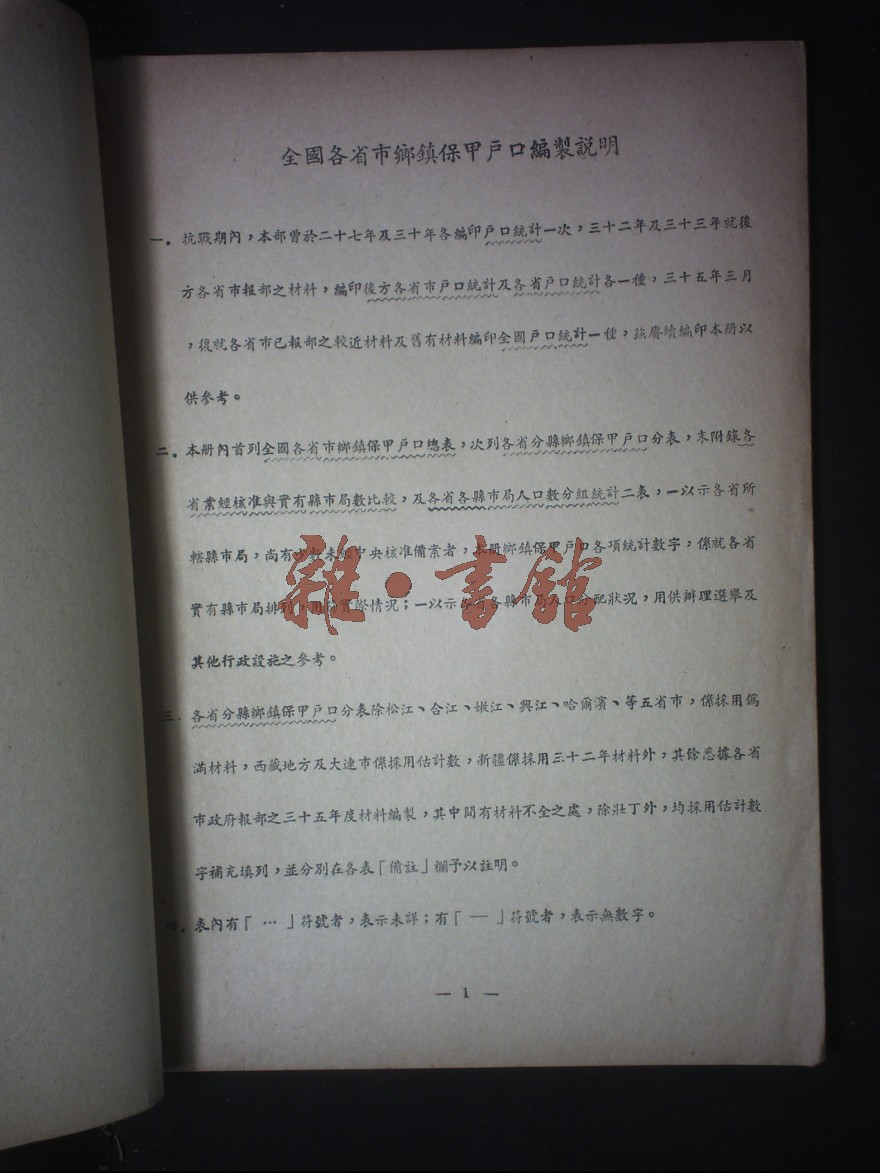 全國各省市鄉鎮保甲戶口編製説明
一. 抗戰期內，本部曾於二十七年及三十年各編印戶口統計一次，三十二年及三十三年就後
方各省市報部之材料，編印後方各省市戶口統計及各省戶口統計各一種，三十五年三月
，復就各省市已報部之較近材料及舊有材料編印全國戶口統計一種，茲賡續編印本册以
供參考。
二. 本册內首列全國各省市鄉鎮保甲戶口總表，次列各省分縣鄉鎮保甲戶口分表，末附錄各
省業經核准與實有縣市局數比較，及各省各縣市局人口數分組統計二表，一以示各省所
轄縣市局，尚有少數未經中央核准備案者，本册鄉鎮保甲戶口各項統計數字，係就各省
實有縣市局排列，用 實際情况；一以示各省各縣市局人口分配狀况，用供辦理選舉及
其他行政設施之參考。
三. 各省分縣鄉鎮保甲戶口分表除松江、合江、嫩江、興江、哈爾濱、等五省市，係採用僞
滿材料，西藏地方及大連市係採用估計數，新疆係採用三十二年材料外，其餘悉據各省
市政府報部之三十五年度材料編製，其中間有材料不全之處，除壯丁外，均採用估計數
字補充填列，並分別在各表「備註」欄予以註明。
四. 表內有「…」符號者，表示未詳；有「—」符號者，表示無數字。
— 1 —
雜·書館